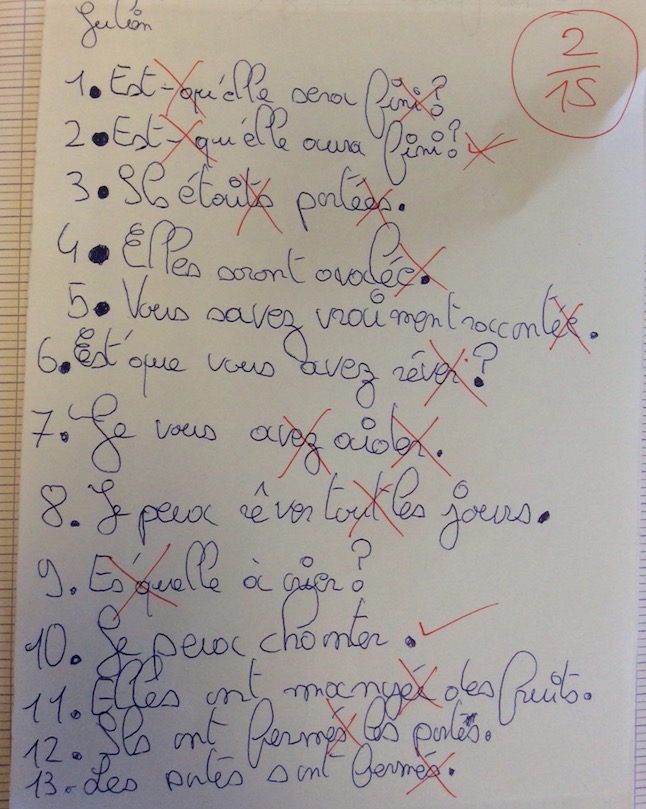 Julian
2
15
1. Est-qu'elle sera fini?
2. Est-qu'elle aura fini?
3. Ils étaits portées.
4. Elles seront avalée.
5. Vous savez vraiment raccontée.
6. Est'que vous avez réver?
7. Je vous avez aider.
8. Je peux rêver tout les jours.
9. Es'quelle à crier?
10. Je peux chanter.
11. Elles ont mangés des fruits.
12. Ils ont fermés les portes.
13. Les portes sont fermés.